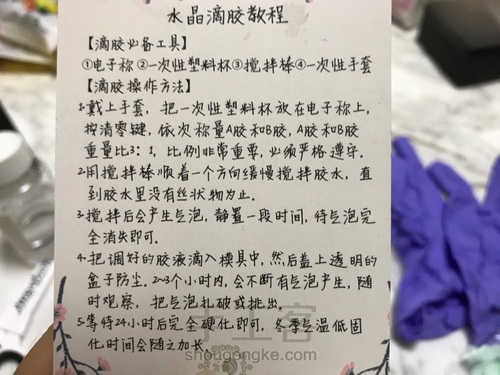 水晶滴胶教程
【滴胶必备工具】
①电子称②一次性塑料杯③搅拌棒④一次性手套
【滴胶操作方法】
1.戴上手套，把一次性塑料杯放在电子称上，
按清零键，依次称量A胶和B胶，A胶和B胶
重量比3：1，比例非常重要，必须严格遵守。
2.用搅拌棒顺着一个方向缓慢搅拌胶水，直
到胶水里没有丝状物为止。
3.搅拌后会产生气泡，静置一段时间，待气泡完
全消失即可。
4.把调好的胶液滴入模具中，然后盖上透明的
盒子防尘。2~3个小时内，会不断有气泡产生，随
时观察，把气泡扎破或挑出。
5.等待24小时后完全硬化即可，冬季气温低固
化时间会随之加长。
手工客
shougongke.com